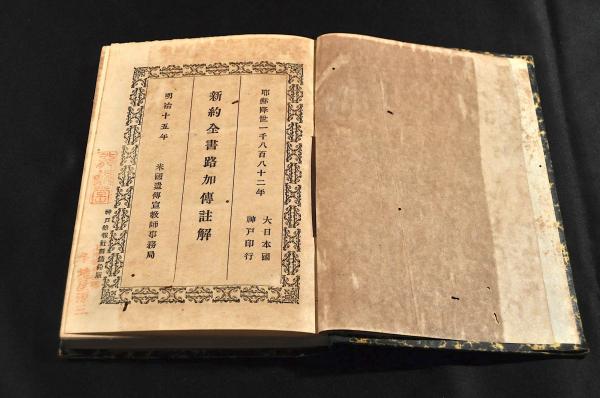 耶穌降世一千八百八十二年
大日本國
神戶印行
新約全書路加傳註解
明治十五年
米國遣傳宣教師事務局